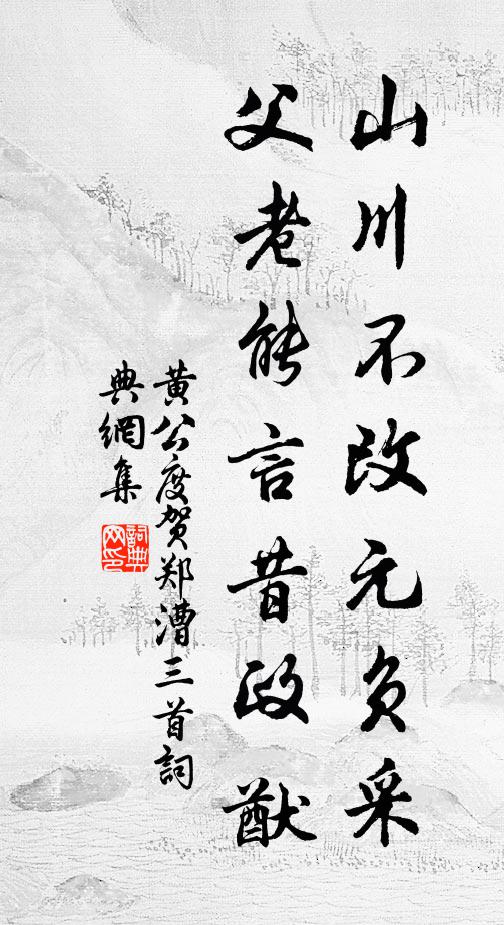 山川不改元负采
父老能言昔政猷
黄公度贺郑漕三首詞
典網集
詞典網印